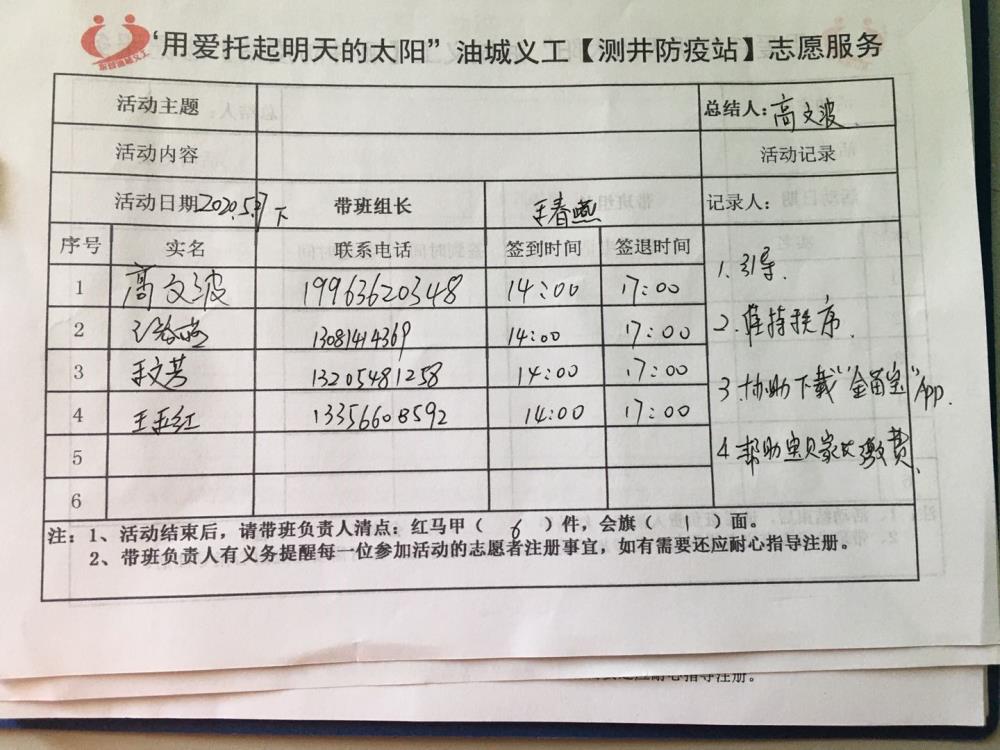 “用爱托起明天的太阳”油城义工【测井防疫站】志愿服务
活动主题 总结人: 高文波
活动内容 活动记录
活动日期 2020.5.27 下 带班组长 王春燕 记录人:
序号 实名 联系电话 签到时间 签退时间
1 高文波 19963620348 14:00 17:00
2 13081414369 14:00 17:00
3 王文芳 13205481258 14:00 17:00
4 王玉红 13356608592 14:00 17:00
5
6
1.引导.
2.维持秩序.
3.协助下载“金苗宝”App.
4.帮助宝贝家长缴费.
注: 1、活动结束后，请带班负责人清点: 红马甲（ 6 ）件，会旗（ 1 ）面。
2、带班负责人有义务提醒每一位参加活动的志愿者注册事宜，如有需要还应耐心指导注册。